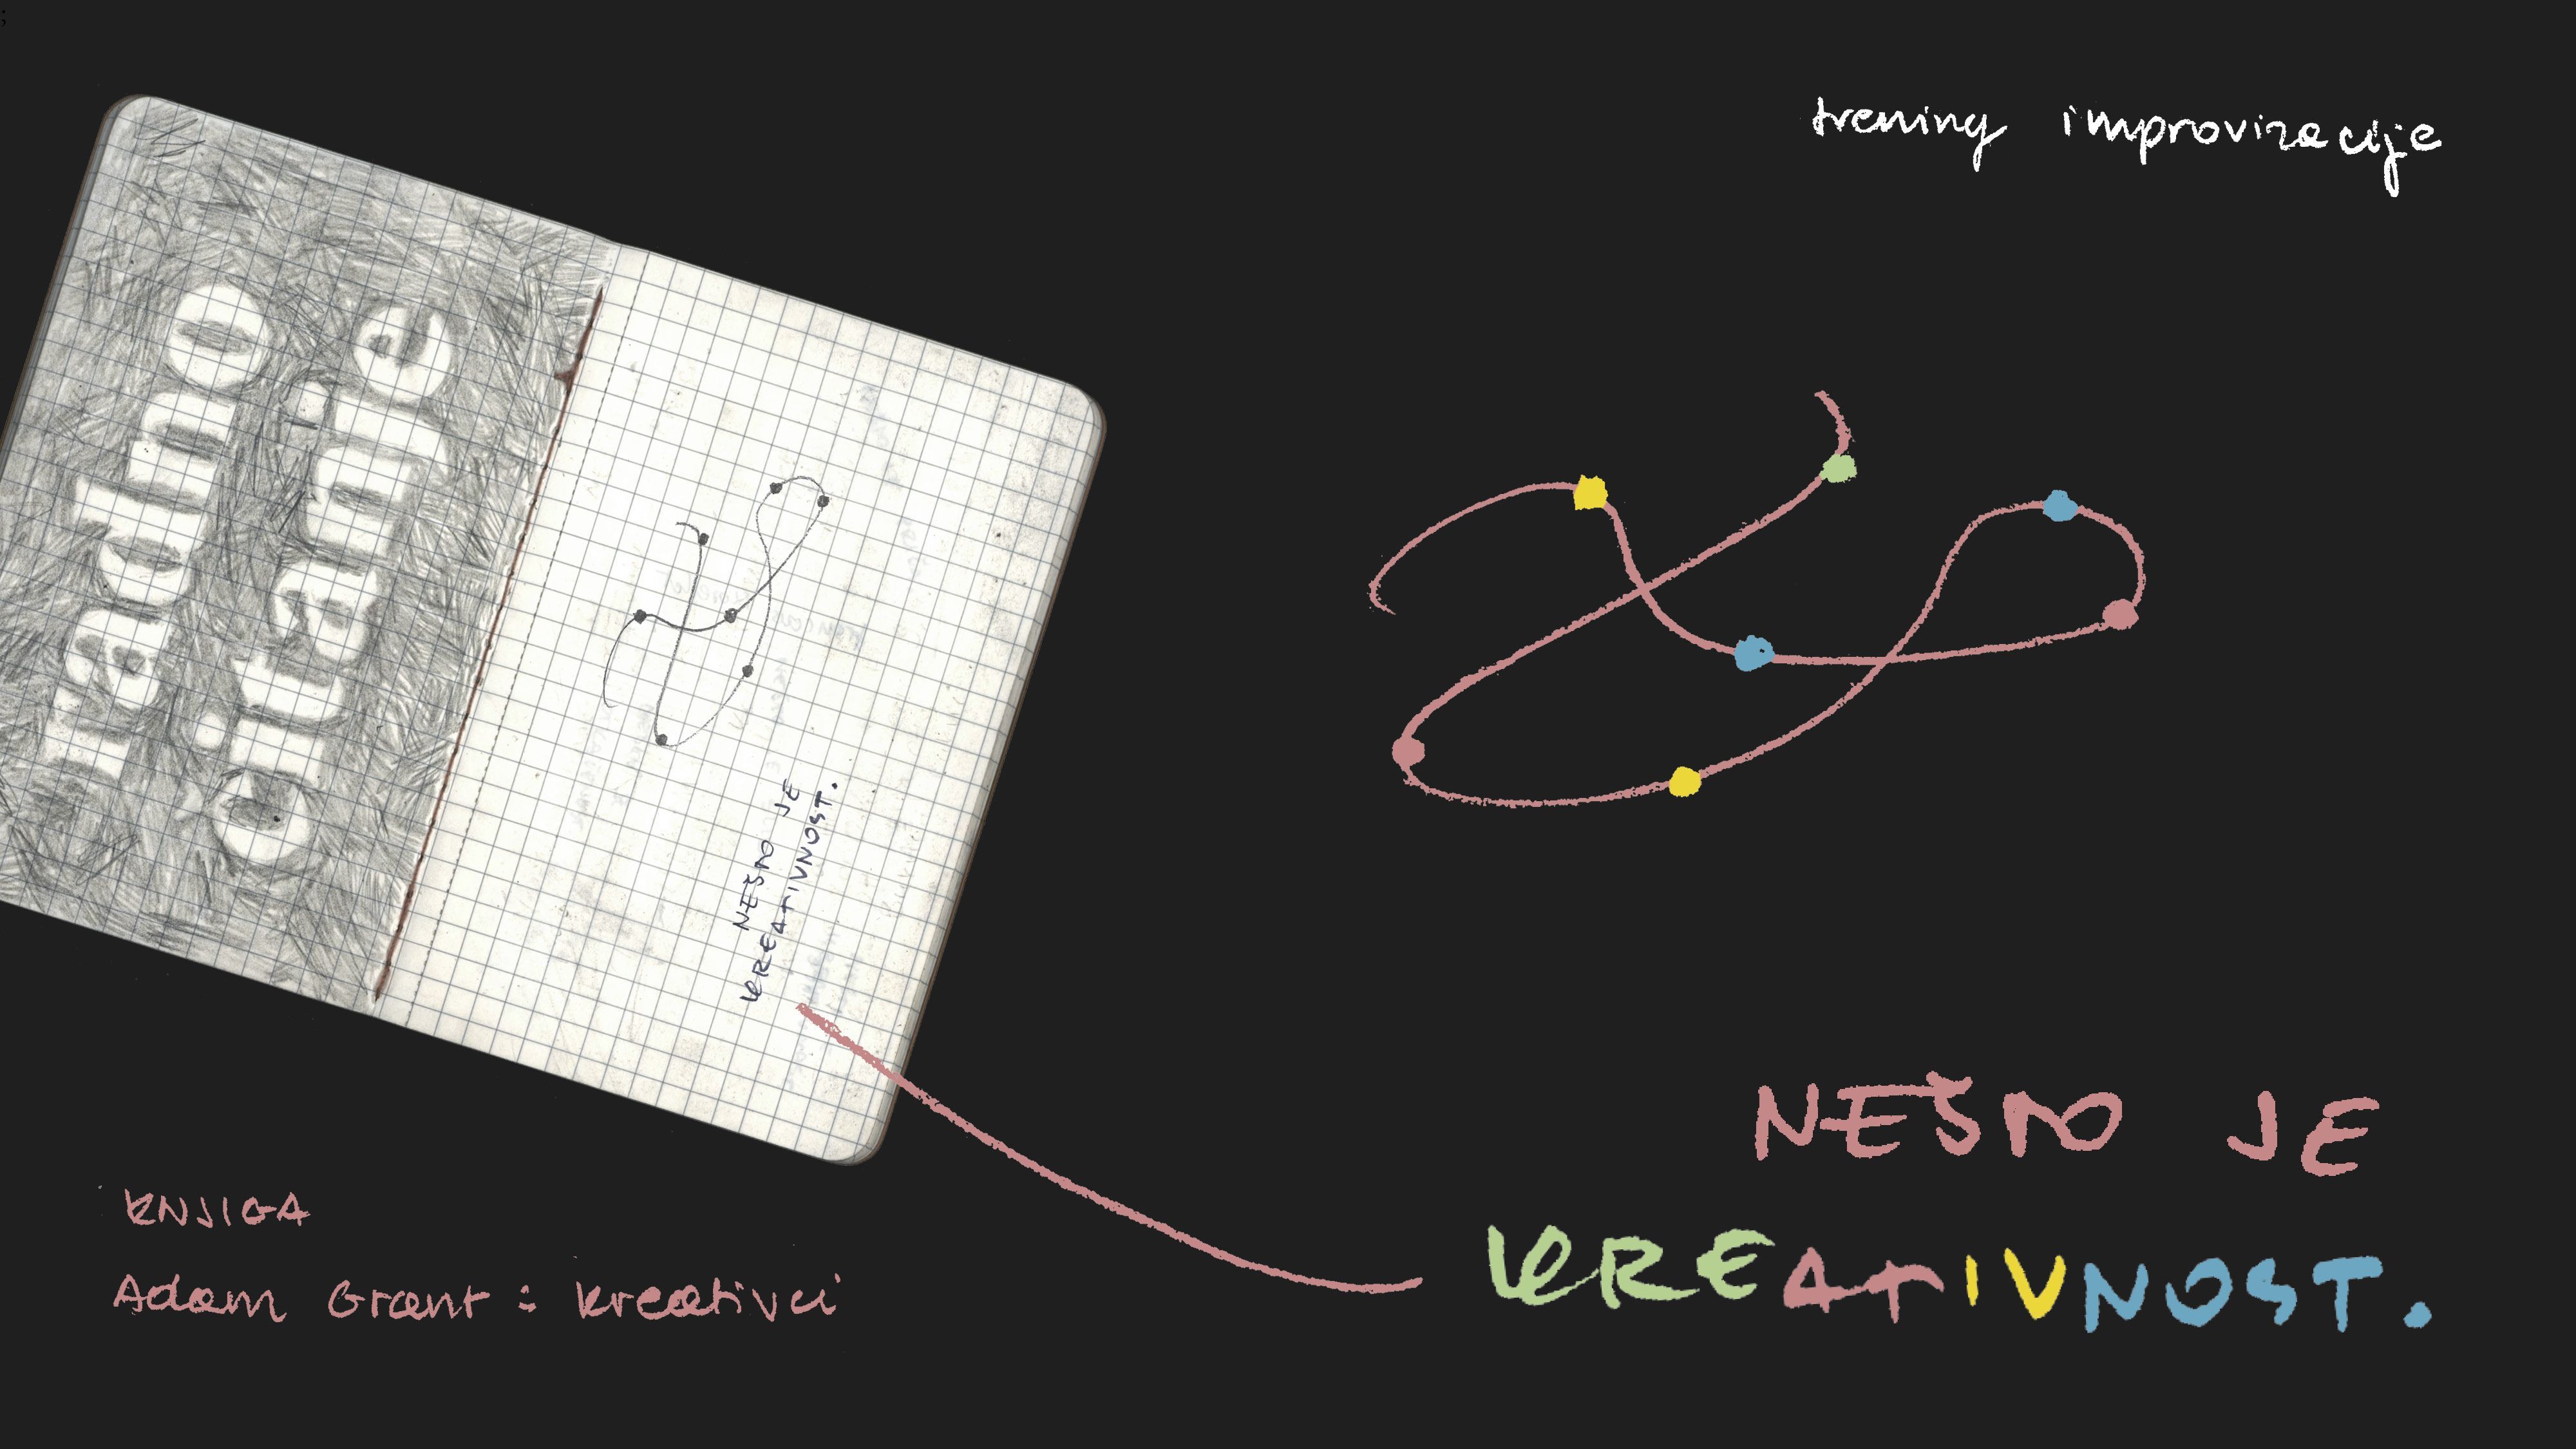 trening improvizacije
NEŠTO JE
KREATIVNOST.
NEŠTO JE
KREATIVNOST.
KNJIGA
Adam Grant : kreativci